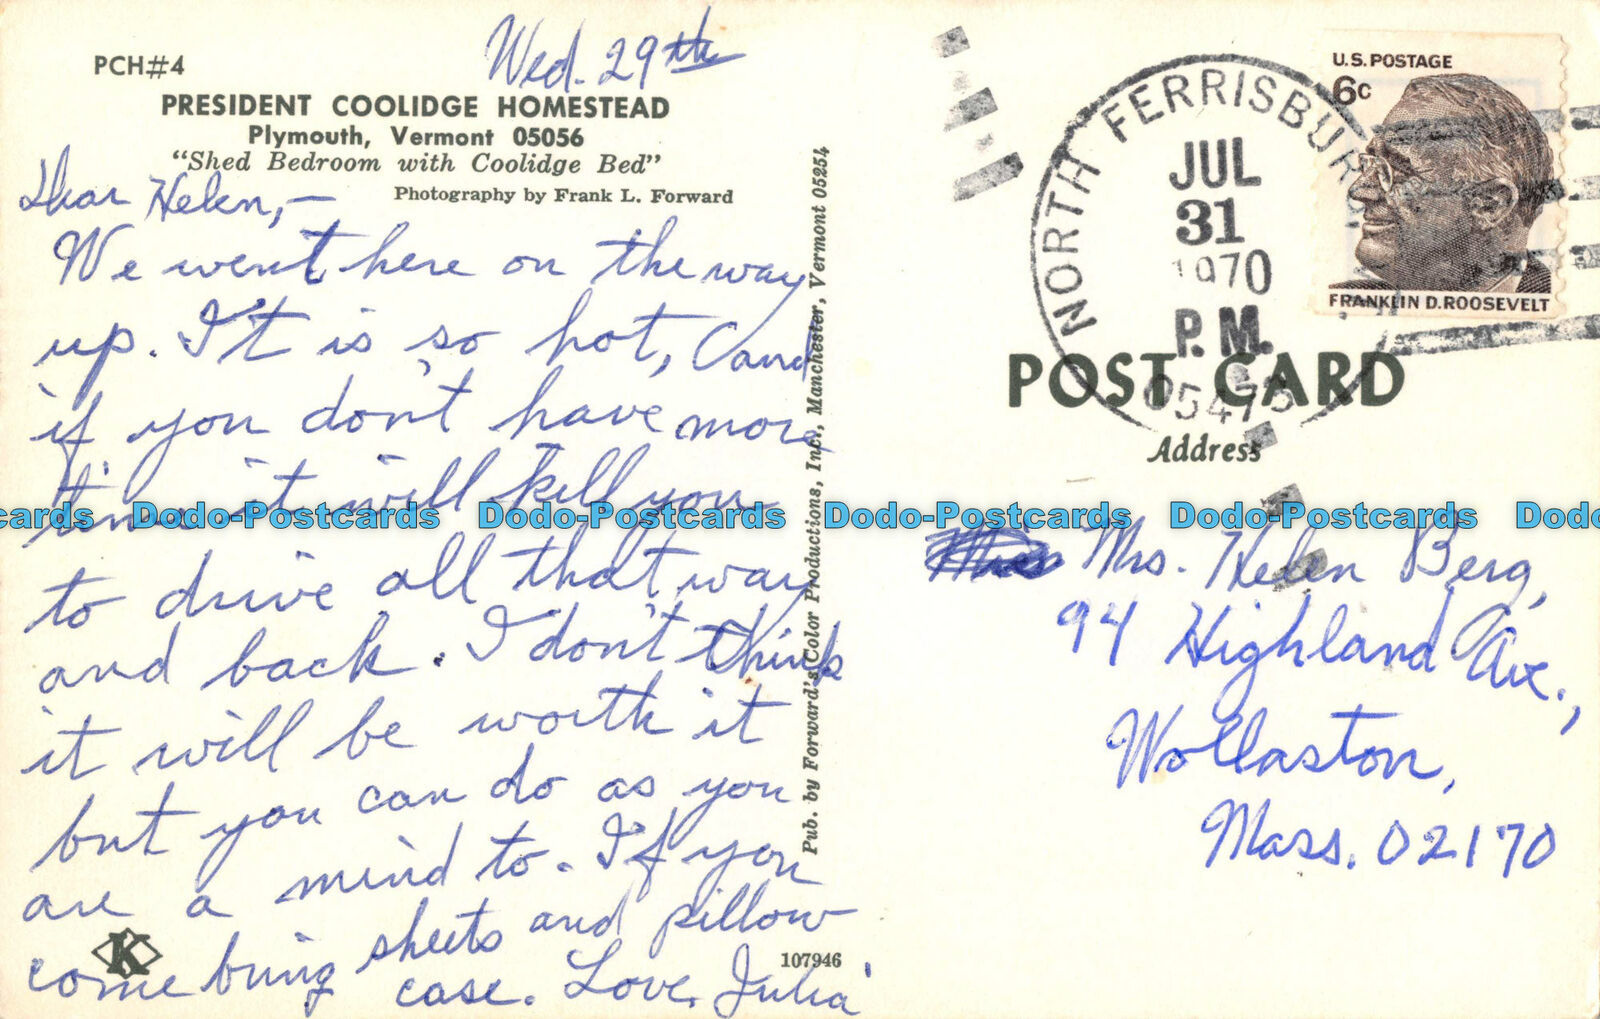 PCH#4
Wed. 29th
PRESIDENT COOLIDGE HOMESTEAD
Plymouth, Vermont 05056
"Shed Bedroom with Coolidge Bed"
Photography by Frank L. Forward
Dear Helen,—
We went here on the way
up. It is so hot, (and
if you don't have more
time it will kill you
to drive all that way
and back. I don't think
it will be worth it
but you can do as you
are a mind to. If you
come bring sheets and pillow
case. Love, Julia
K
107946
Pub. by Forward's Color Productions, Inc., Manchester, Vermont 05254
NORTH FERRISBURG
JUL
31
1970
P.M.
05473
U.S. POSTAGE
6c
FRANKLIN D. ROOSEVELT
POST CARD
Address
Mrs. Helen Berg,
94 Highland Ave.,
Wollaston,
Mass. 02170
cards Dodo-Postcards Dodo-Postcards Dodo-Postcards Dodo-Postcards Dodo